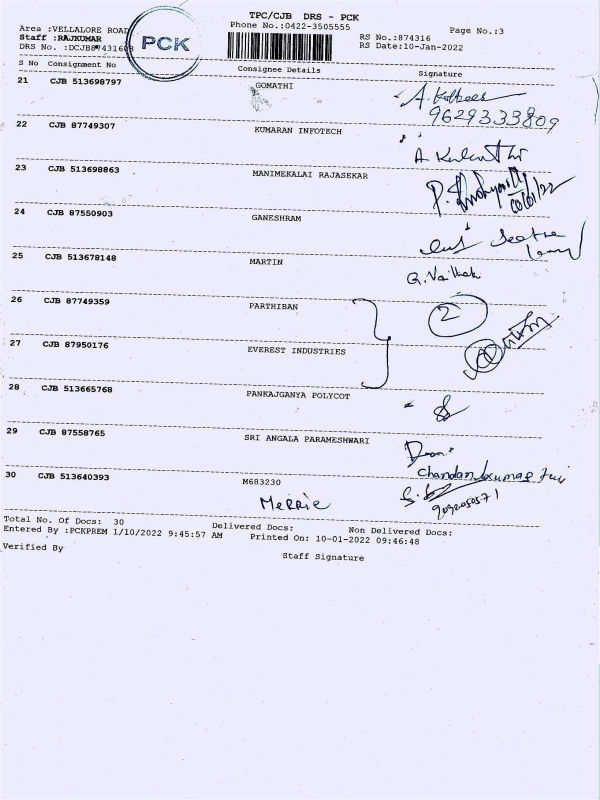 TPC/CJB DRS - PCK
Area :VELLALORE ROAD Phone No.:0422-3505555 Page No.:3
Staff :RAJKUMAR RS No.:874316
DRS No. :DCJB87431603 RS Date:10-Jan-2022
PCK
S No Consignment No Consignee Details Signature
21 CJB 513698797 GOMATHI
9629333809
22 CJB 87749307 KUMARAN INFOTECH
23 CJB 513698863 MANIMEKALAI RAJASEKAR
24 CJB 87550903 GANESHRAM
25 CJB 513678148 MARTIN
26 CJB 87749359 PARTHIBAN 2
27 CJB 87950176 EVEREST INDUSTRIES
28 CJB 513665768 PANKAJGANYA POLYCOT
29 CJB 87558765 SRI ANGALA PARAMESHWARI
30 CJB 513640393 M683230
Merrie
Total No. Of Docs: 30 Delivered Docs: Non Delivered Docs:
Entered By :PCKPREM 1/10/2022 9:45:57 AM Printed On: 10-01-2022 09:46:48
Verified By Staff Signature